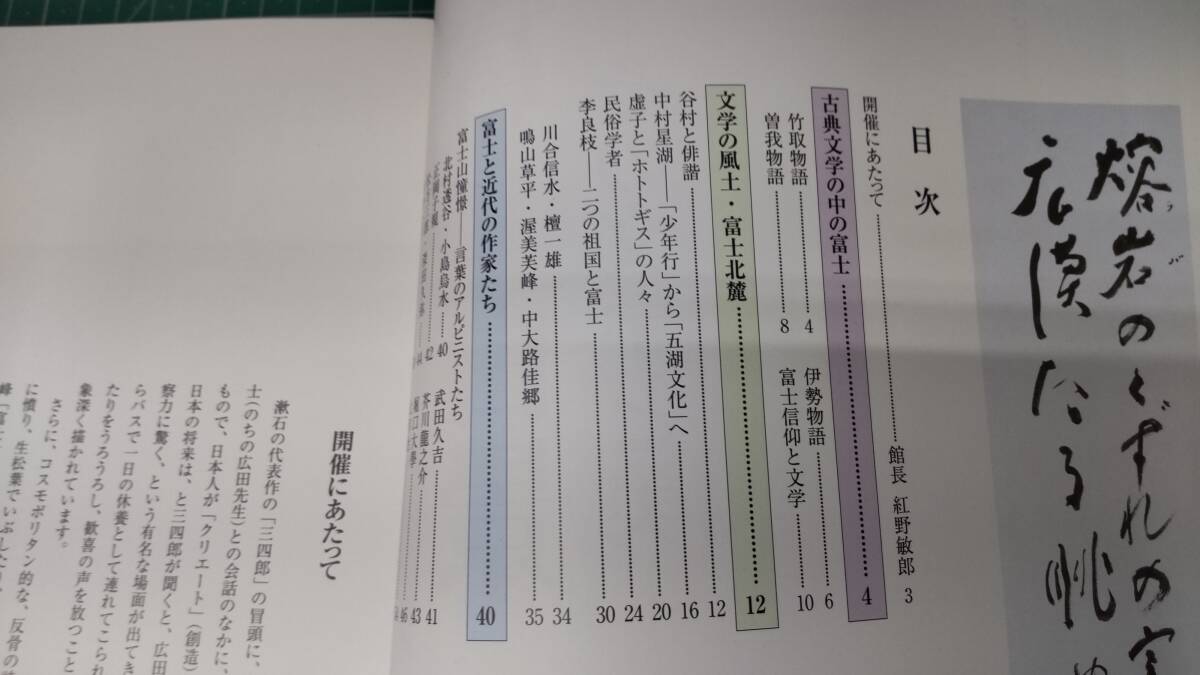 熔岩のくずれの
目次
開催にあたって…………館長 紅野敏郎 3
古典文学の中の富士…………4
竹取物語…………4
伊勢物語…………6
曽我物語…………8
富士信仰と文学…………10
文学の風土・富士北麓…………12
谷村と俳諧…………12
中村星湖――「少年行」から「五湖文化」へ…………16
虚子と「ホトトギス」の人々…………20
民俗学者…………24
李良枝――二つの祖国と富士…………30
川合信水・檀一雄…………34
鳴山草平・渥美芙峰・中大路佳郷…………35
富士と近代の作家たち…………40
富士山憧憬――言葉のアルピニストたち
北村透谷・小島烏水……40
武田久吉…………41
正岡子規…………42
芥川龍之介…………43
44
堀口大學…………46
開催にあたって
漱石の代表作の「三四郎」の冒頭に、
士(のちの広田先生)との会話のなかに、
もので、日本人が「クリエート」(創造)
日本の将来は、と三四郎が聞くと、広田
察力に驚く、という有名な場面が出てき
らバスで一日の休養として連れてこられ
たりをうろうろし、歓喜の声を放つこと
象深く描かれています。
さらに、コスモポリタン的な、反骨の
に憤り、生松葉でいぶしたり、